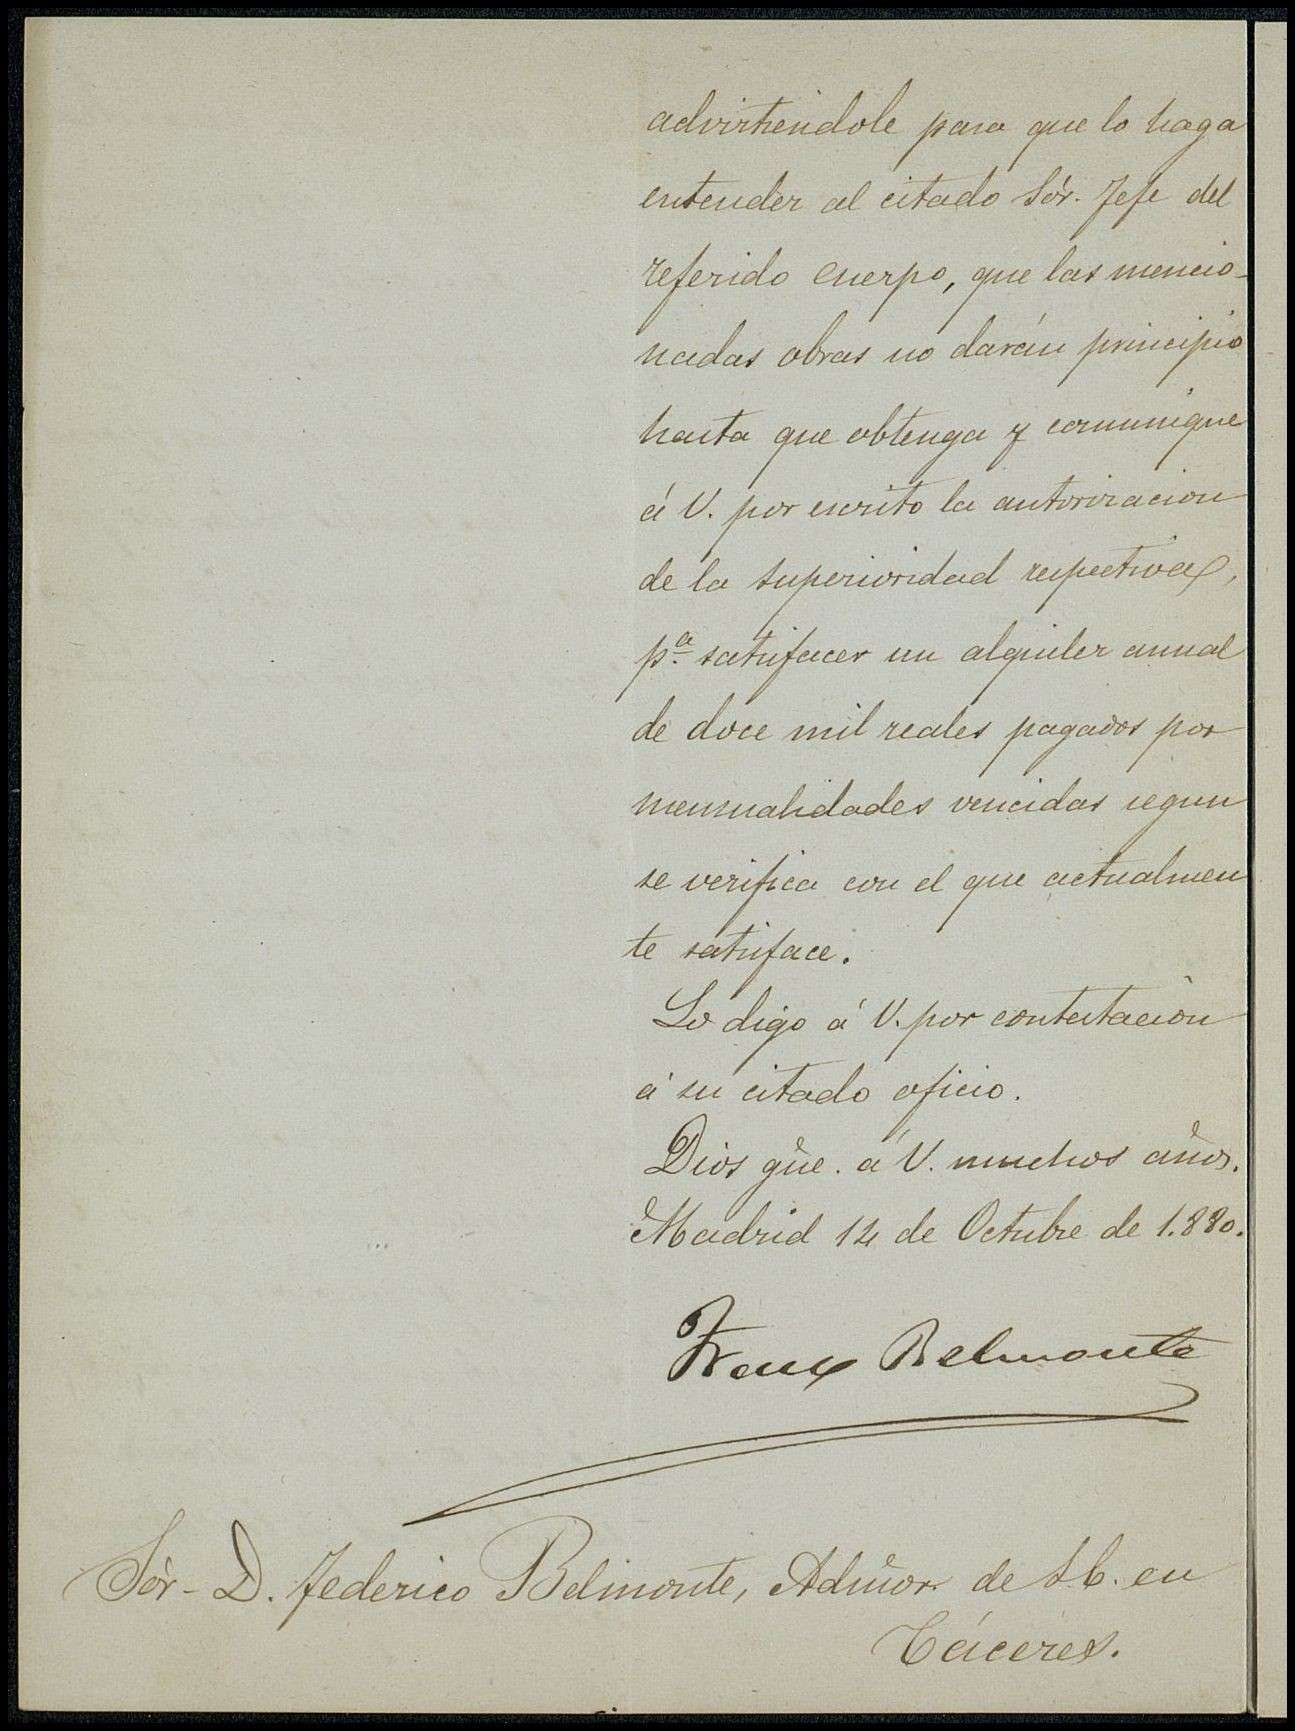 advirtiendole para que lo haga
entender al citado Sór. Jefe del
referido cuerpo, que las mencio-
nadas obras no darán principio
hasta que obtenga y comunique
á V. por escrito la autorizacion
de la superioridad respectiva,
pª satisfacer un alquiler anual
de doce mil reales pagados por
mensualidades vencidas segun
se verifica con el que actualmen
te satisface.
Lo digo á V. por contestación
á su citado oficio.
Dios güe. á V. muchos años.
Madrid 14 de Octubre de 1.880.
Franco Belmonte
Sór. D. Federico Belmonte, Admor. de S.E. en
Cáceres.